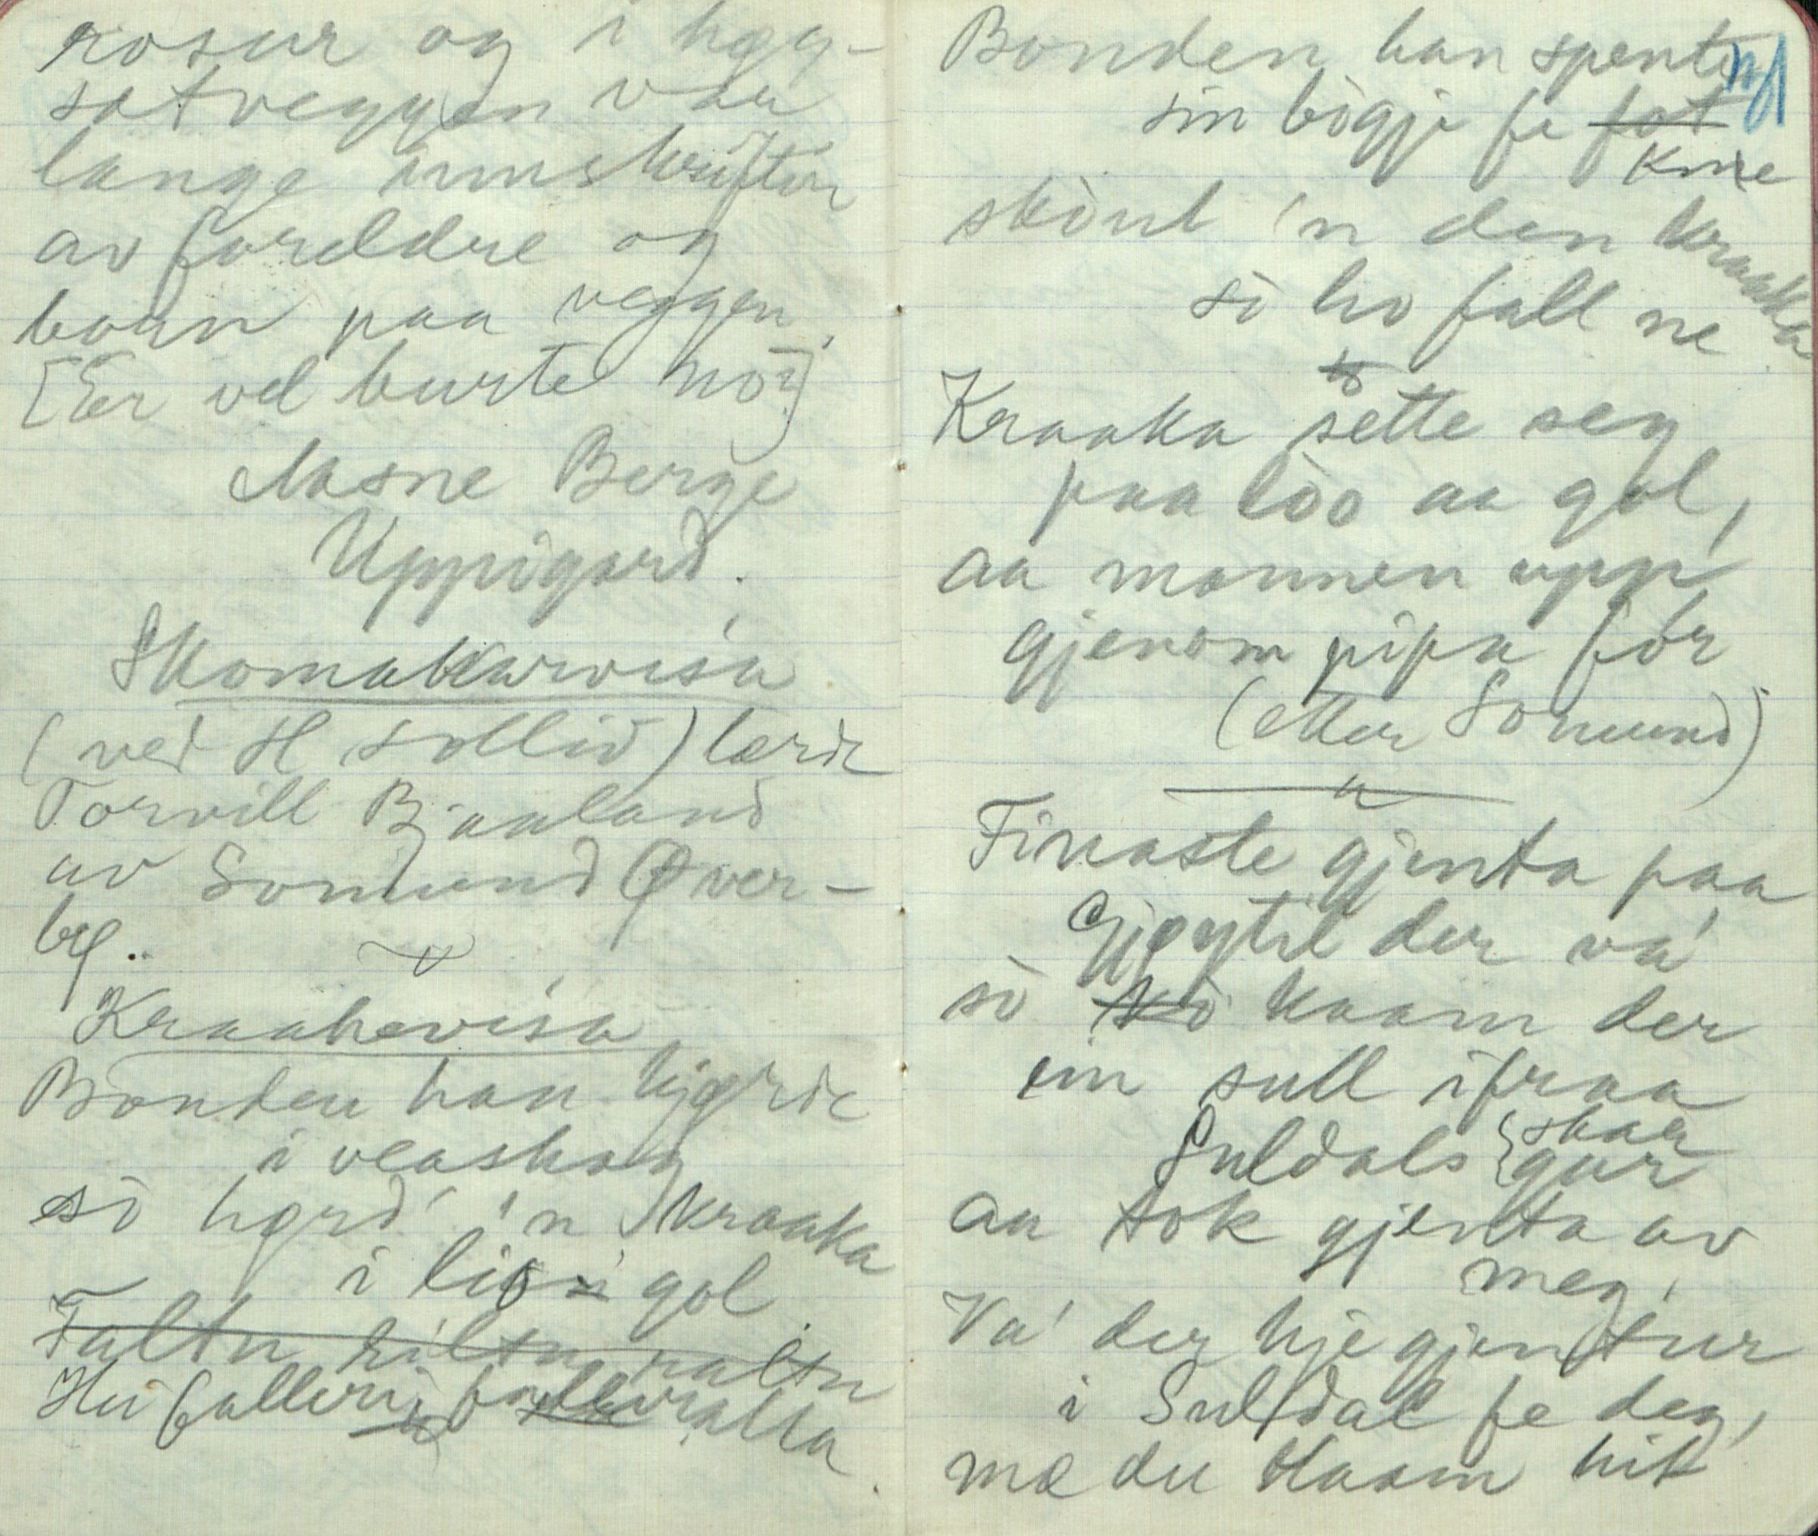 rosur og i høg-
sætveggen var
lange innskrifter
av foreldre og
boan paa veggen.
[Er vel burte no?]
Aasne Berge
Uppigard.
Skomakarvisa
(ved H Sollid) lærde
Torvill Bjaaland
av Somund Øver-
bø..
Kraakevisa
Bonden han kjørde
i veaskog
so hørd' 'n kraaka
i lio gol.
Faltu riltu raltu
Hei falleri falleralla.
Bonden han spente
sin bògje fe fot
kne
skòut 'n den kraaka
sò ho fall ne
Kraaka sette seg
paa lòo aa gol,
aa mannen upp
gjenom pipa fór
(etter Somund)
Finaste gjenta paa
Gjøytil der va'
sò kaam der
ein sull ifraa
Suldals skar
gar
aa tok gjenta av
meg.
Va' der kje gjentur
i Suldal fe deg,
mæ du kaam hit